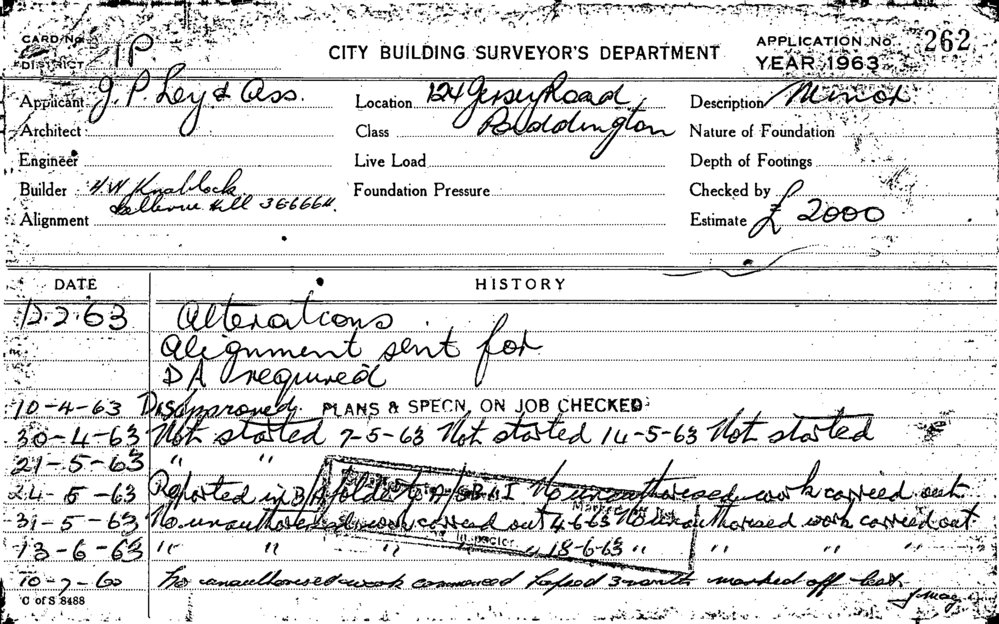 CARD No.
DISTRICT 1P
CITY BUILDING SURVEYOR'S DEPARTMENT
APPLICATION No. 262
YEAR 1963
Applicant J. P. Ley & Ass. Location 124 Jersey Road Description Minor
Architect Class Paddington Nature of Foundation
Engineer Live Load Depth of Footings
Builder H W Knoblock Foundation Pressure Checked by
Bellevue Hill 366664.
Alignment Estimate £ 2000
DATE HISTORY
12.2.63 Alterations
Alignment sent for
DA required
10-4-63 Disapproved. PLANS & SPECN. ON JOB CHECKED
30-4-63 Not started 7-5-63 Not started 14-5-63 Not started
21-5-63 " "
24-5-63 Reported in B/A folder to A/CB & I No unauthorised work carried out
31-5-63 No unauthorised work carried out 4-6-63 No unauthorised work carried out
13-6-63 " " " " 18-6-63 " " " "
10-7-60 No unauthorised work commenced lapsed 3 months marked off
C of S 8488